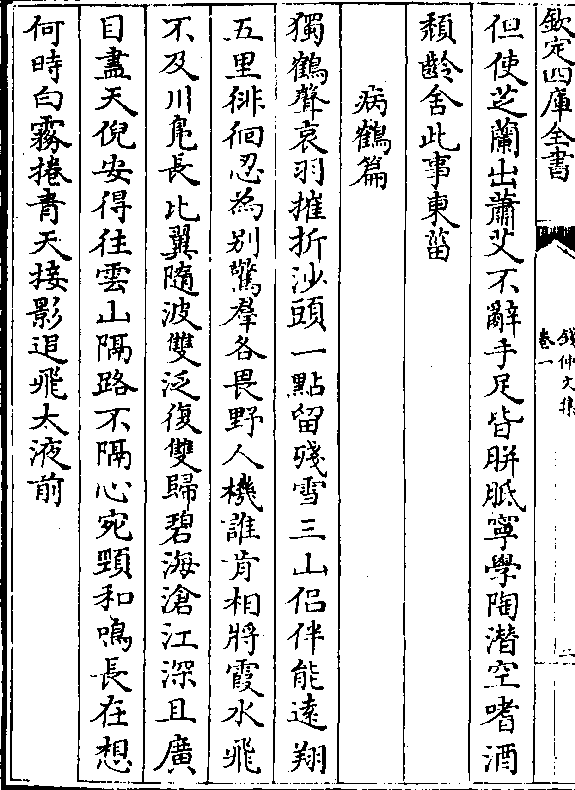 欽定四庫全書
錢仲文集
卷一
但使芝蘭出蕭艾不辭手足皆胼胝寧學陶潛空嗜酒
頽齡舍此事東菑
病鶴篇
獨鶴聲哀羽摧折沙頭一點留殘雪三山侣伴能逺翔
五里徘徊忍為别驚羣各畏野人機誰肯相將霞水飛
不及川鳬長比翼隨波雙泛復雙歸碧海滄江深且廣
目盡天倪安得往雲山隔路不隔心宛頸和鳴長在想
何時白霧捲青天接影追飛太液前